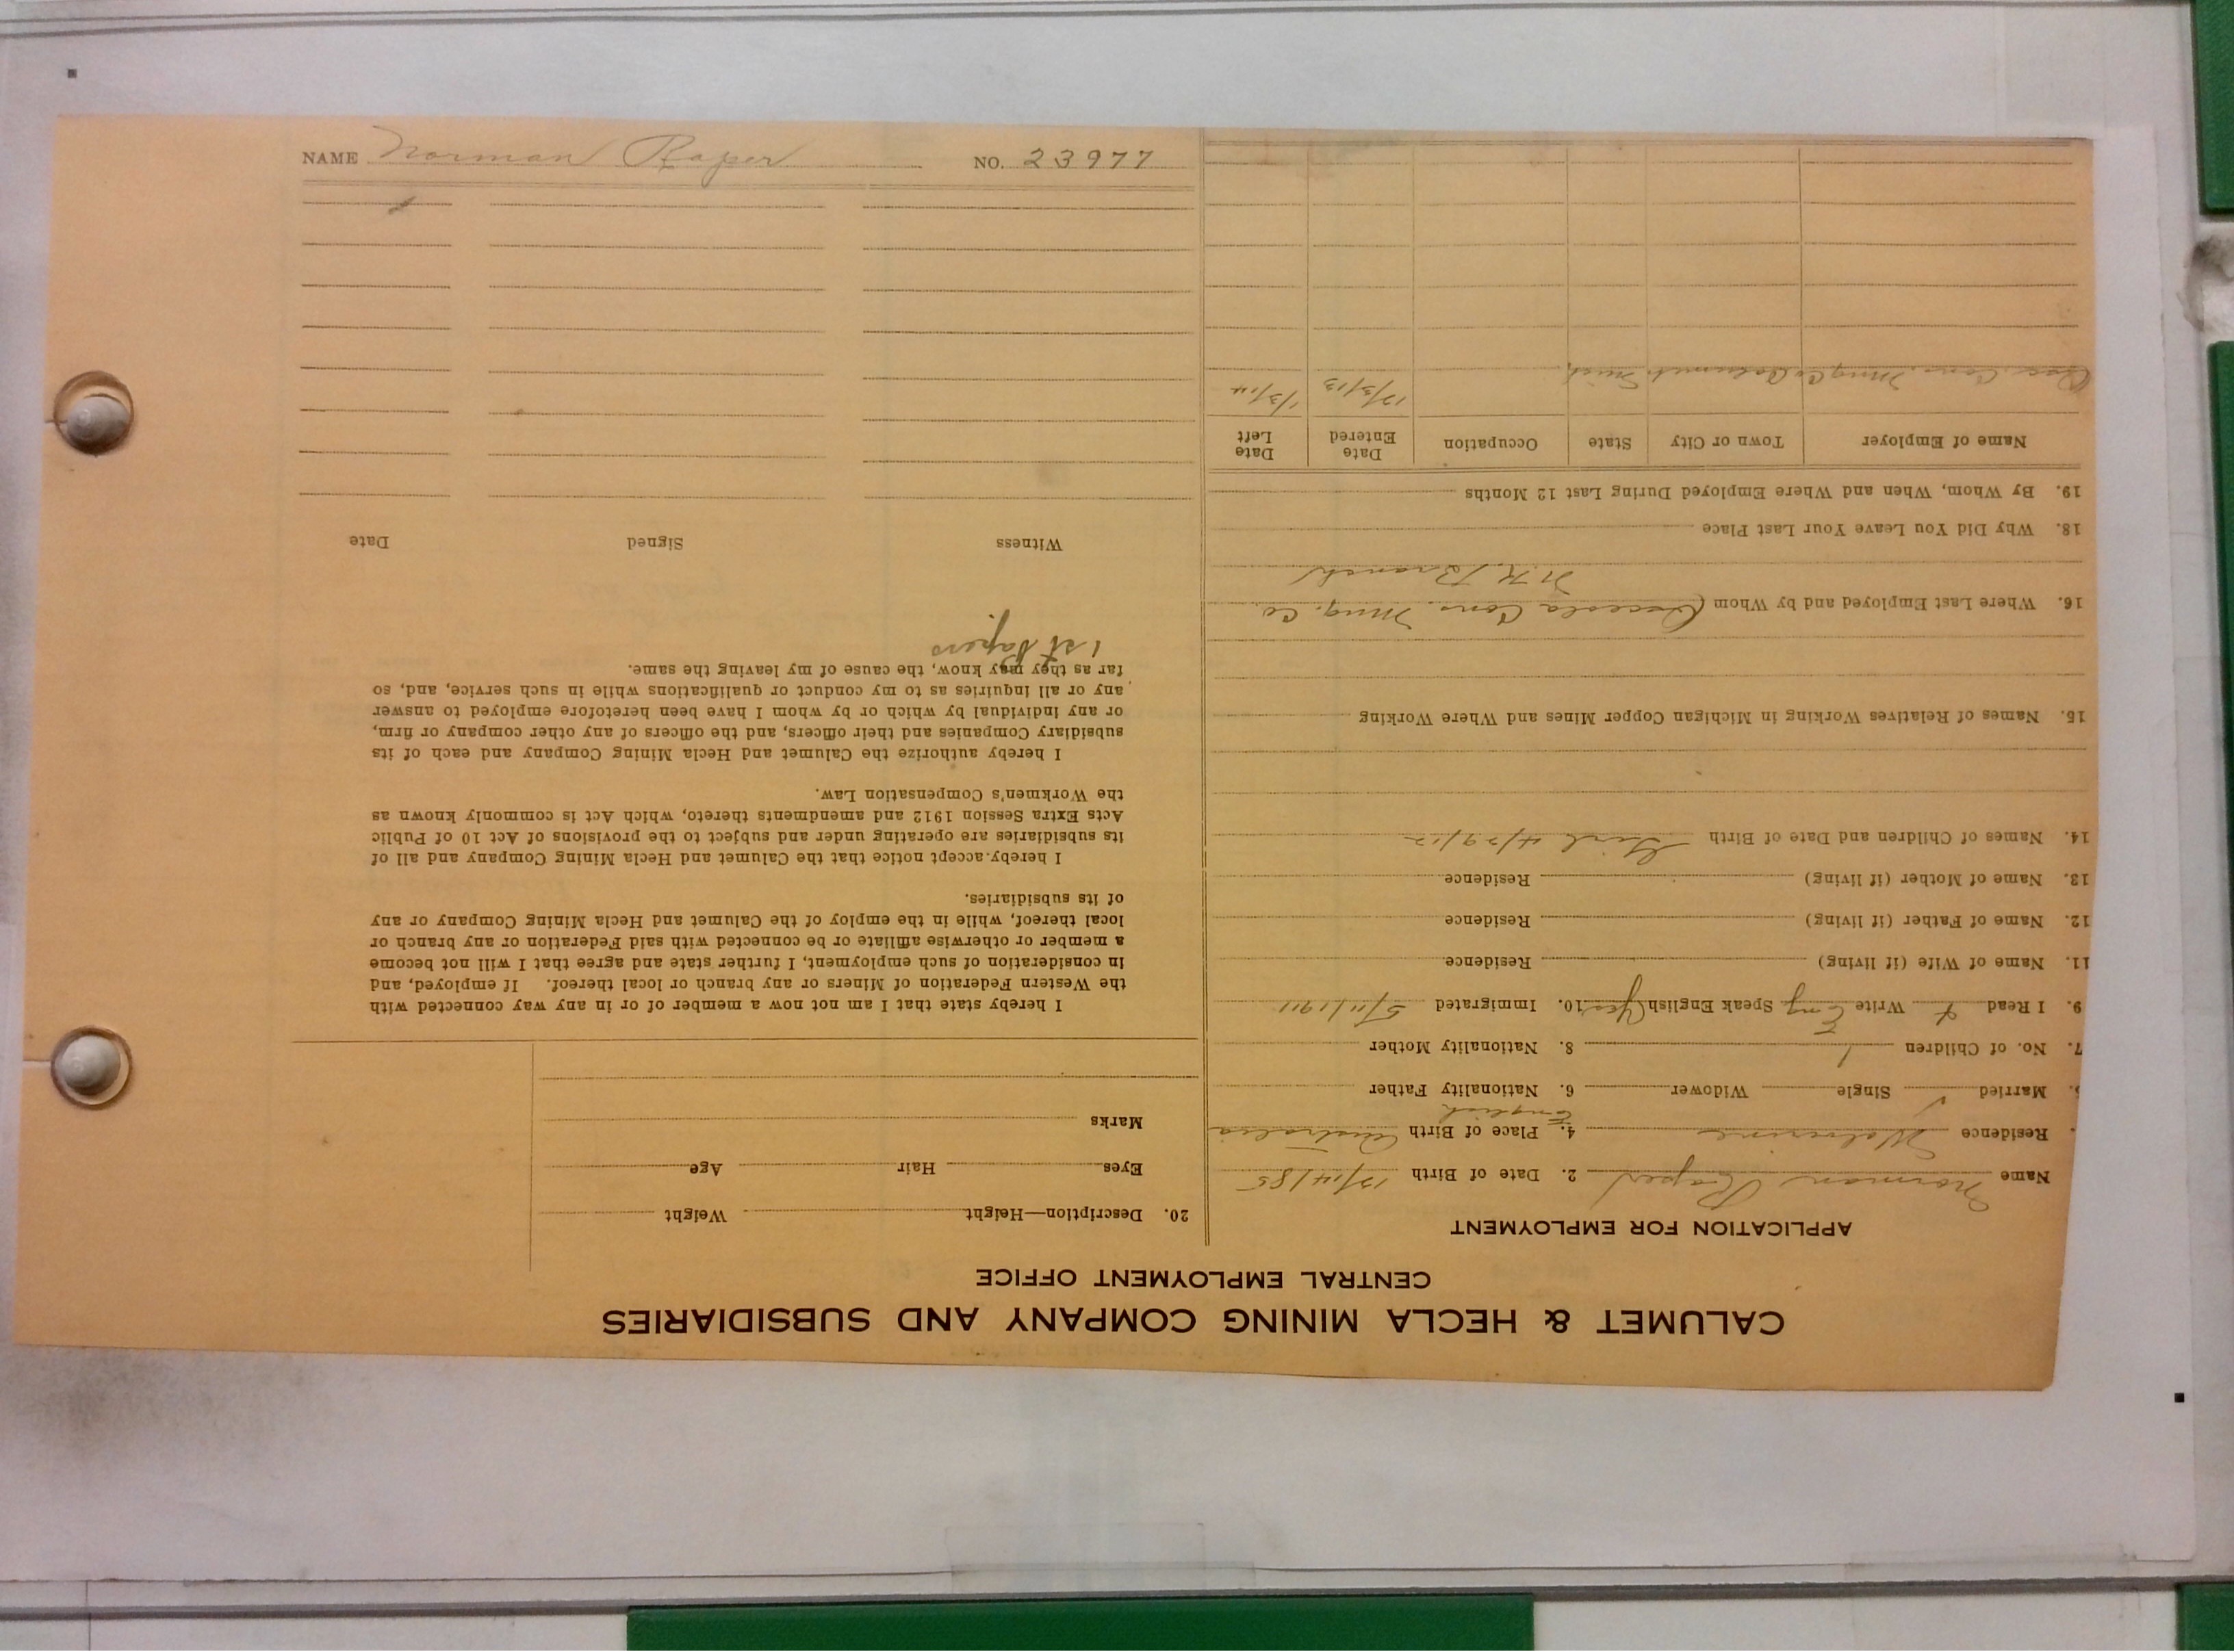 NAME Norman Raper NO. 23977
CALUMET & HECLA MINING COMPANY AND SUBSIDIARIES
CENTRAL EMPLOYMENT OFFICE
APPLICATION FOR EMPLOYMENT
Name Norman Raper 2. Date of Birth 12/14/85
Residence Wolverine 4. Place of Birth Australia
English
Married √ Single Widower 6. Nationality Father
7. No. of Children 1 8. Nationality Mother
9. I Read + Write Eng Speak English Yes 10. Immigrated 5/11/1911
11. Name of Wife (if living) Residence
12. Name of Father (if living) Residence
13. Name of Mother (if living) Residence
14. Names of Children and Date of Birth Girl 4/29/12
15. Names of Relatives Working in Michigan Copper Mines and Where Working
16. Where Last Employed and by Whom Osceola Cons. Mng. Co.
N.K. Branch
18. Why Did You Leave Your Last Place
19. By Whom, When and Where Employed During Last 12 Months
Name of Employer Town or City State Occupation Date Entered Date Left
Osc. Cons. Mng Co Calumet Mich. 12/3/13 1/3/14
20. Description—Height Weight
Eyes Hair Age
Marks
I hereby state that I am not now a member of or in any way connected with
the Western Federation of Miners or any branch or local thereof. If employed, and
in consideration of such employment, I further state and agree that I will not become
a member or otherwise affiliate or be connected with said Federation or any branch or
local thereof, while in the employ of the Calumet and Hecla Mining Company or any
of its subsidiaries.
I hereby accept notice that the Calumet and Hecla Mining Company and all of
its subsidiaries are operating under and subject to the provisions of Act 10 of Public
Acts Extra Session 1912 and amendments thereto, which Act is commonly known as
the Workmen's Compensation Law.
I hereby authorize the Calumet and Hecla Mining Company and each of its
subsidiary Companies and their officers, and the officers of any other company or firm,
or any individual by which or by whom I have been heretofore employed to answer
any or all inquiries as to my conduct or qualifications while in such service, and, so
far as they may know, the cause of my leaving the same.
1st papers
Witness Signed Date